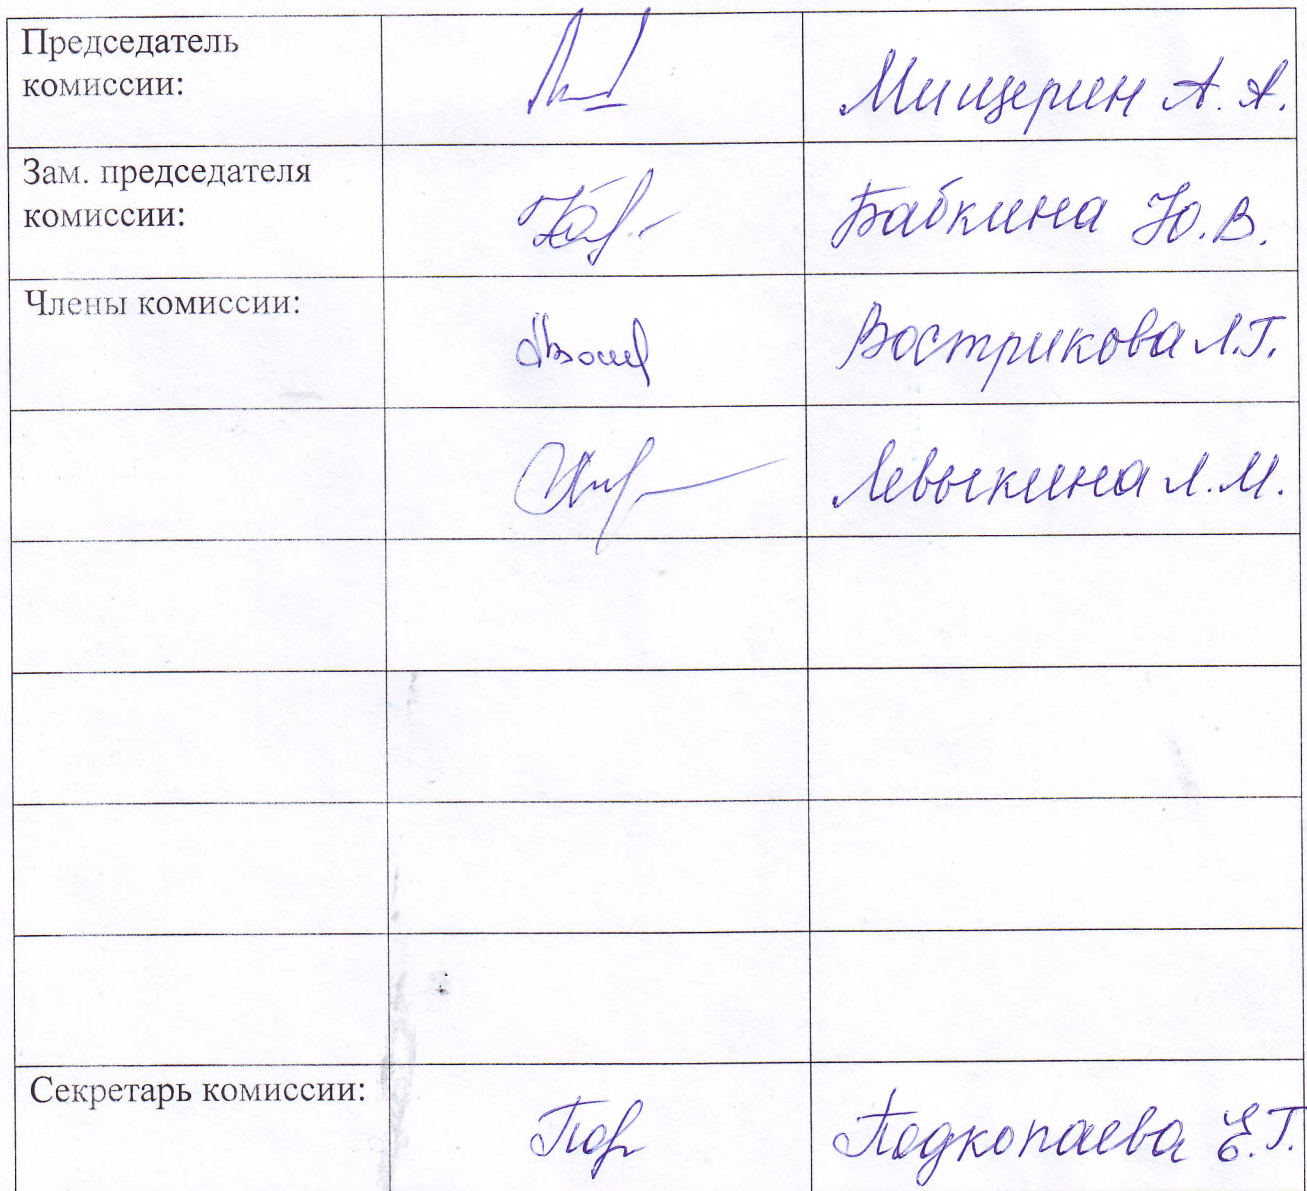 Председатель
комиссии:
Мищерин А. А.
Зам. председателя
комиссии:
Бабкина Ю. В.
Члены комиссии:
Вострикова Л.Г.
Левыкина Л.М.
Секретарь комиссии:
Подкопаева Е.Г.